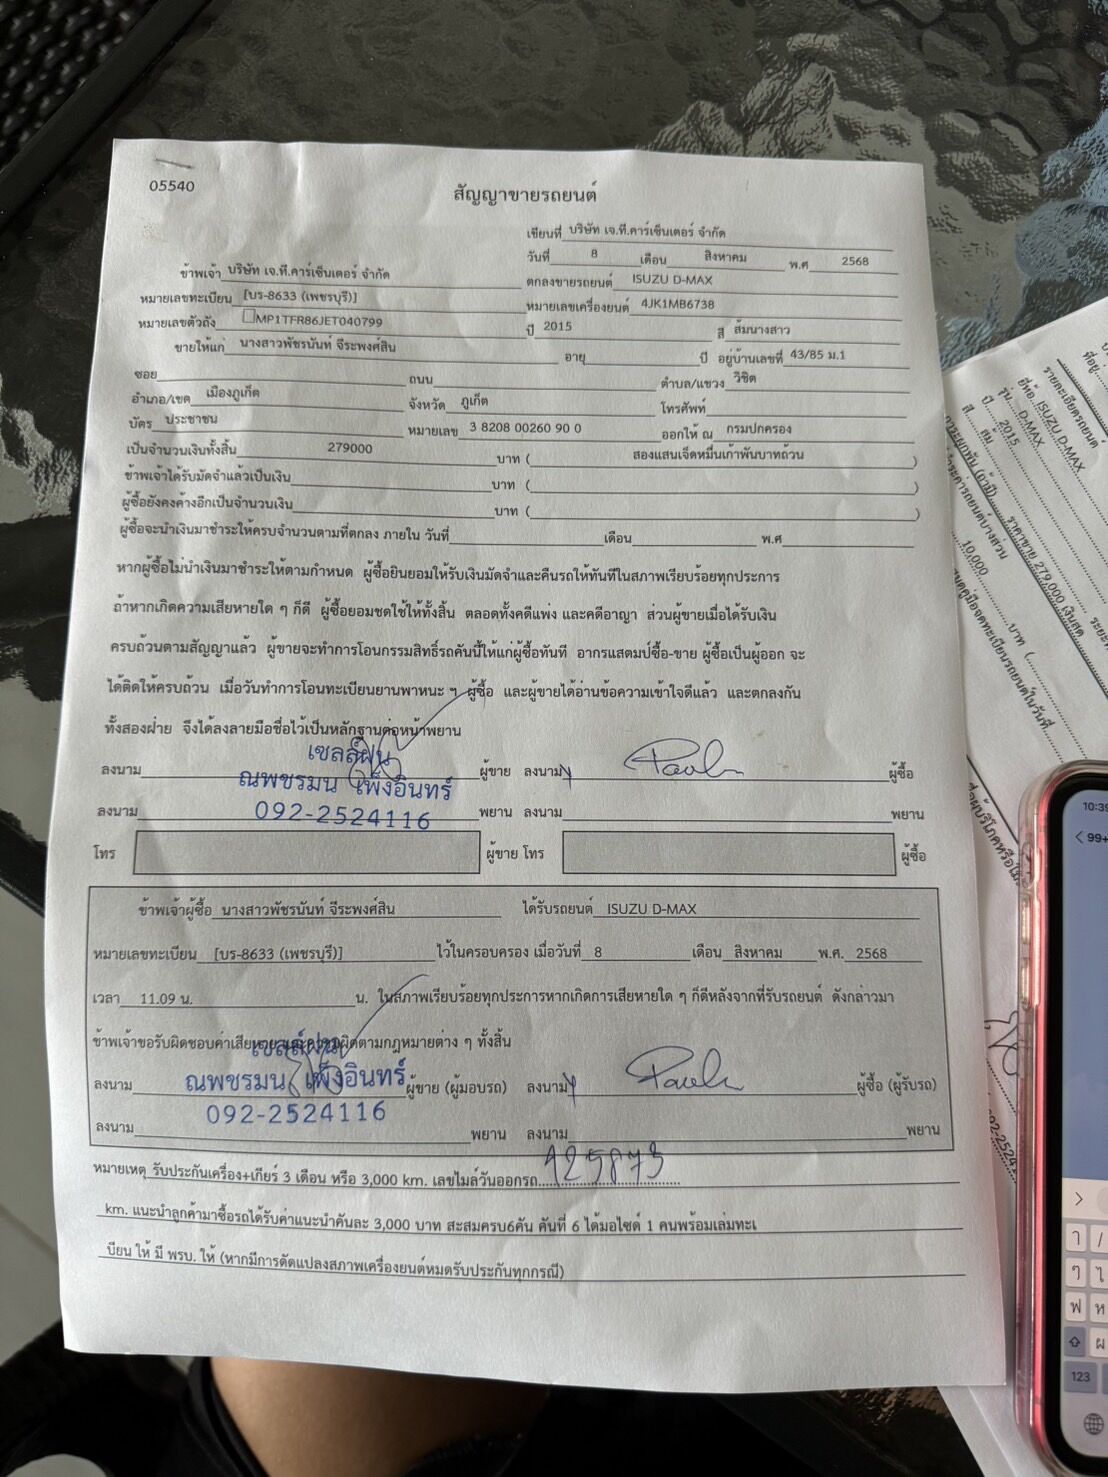 05540
สัญญาขายรถยนต์
เขียนที่ บริษัท เจ.ที.คาร์เซ็นเตอร์ จำกัด
วันที่ 8 เดือน สิงหาคม พ.ศ 2568
ข้าพเจ้า บริษัท เจ.ที.คาร์เซ็นเตอร์ จำกัด ตกลงขายรถยนต์ ISUZU D-MAX
หมายเลขทะเบียน [บร-8633 (เพชรบุรี)] หมายเลขเครื่องยนต์ 4JK1MB6738
หมายเลขตัวถัง MP1TFR86JET040799 ปี 2015 สี ส้มนางสาว
ขายให้แก่ นางสาวพัชรนันท์ จีระพงศ์สิน อายุ ปี อยู่บ้านเลขที่ 43/85 ม.1
ซอย ถนน ตำบล/แขวง วิชิต
อำเภอ/เขต เมืองภูเก็ต จังหวัด ภูเก็ต โทรศัพท์
บัตร ประชาชน หมายเลข 3 8208 00260 90 0 ออกให้ ณ กรมปกครอง
เป็นจำนวนเงินทั้งสิ้น 279000 บาท ( สองแสนเจ็ดหมื่นเก้าพันบาทถ้วน )
ข้าพเจ้าได้รับมัดจำแล้วเป็นเงิน บาท ( )
ผู้ซื้อยังคงค้างอีกเป็นจำนวนเงิน บาท ( )
ผู้ซื้อจะนำเงินมาชำระให้ครบจำนวนตามที่ตกลง ภายใน วันที่ เดือน พ.ศ
หากผู้ซื้อไม่นำเงินมาชำระให้ตามกำหนด ผู้ซื้อยินยอมให้รับเงินมัดจำและคืนรถให้ทันทีในสภาพเรียบร้อยทุกประการ
ถ้าหากเกิดความเสียหายใด ๆ ก็ดี ผู้ซื้อยอมชดใช้ให้ทั้งสิ้น ตลอดทั้งคดีแพ่ง และคดีอาญา ส่วนผู้ขายเมื่อได้รับเงิน
ครบถ้วนตามสัญญาแล้ว ผู้ขายจะทำการโอนกรรมสิทธิ์รถคันนี้ให้แก่ผู้ซื้อทันที อากรแสตมป์ซื้อ-ขาย ผู้ซื้อเป็นผู้ออก จะ
ได้ติดให้ครบถ้วน เมื่อวันทำการโอนทะเบียนยานพาหนะ ฯ ผู้ซื้อ และผู้ขายได้อ่านข้อความเข้าใจดีแล้ว และตกลงกัน
ทั้งสองฝ่าย จึงได้ลงลายมือชื่อไว้เป็นหลักฐานต่อหน้าพยาน
เซลล์ฝน
ลงนาม ผู้ขาย ลงนาม ผู้ซื้อ
ณพชรมน เพ็งอินทร์
092-2524116
ลงนาม พยาน ลงนาม พยาน
โทร ผู้ขาย โทร ผู้ซื้อ
ข้าพเจ้าผู้ซื้อ นางสาวพัชรนันท์ จีระพงศ์สิน ได้รับรถยนต์ ISUZU D-MAX
หมายเลขทะเบียน [บร-8633 (เพชรบุรี)] ไว้ในครอบครอง เมื่อวันที่ 8 เดือน สิงหาคม พ.ศ. 2568
เวลา 11.09 น. น. ในสภาพเรียบร้อยทุกประการหากเกิดการเสียหายใด ๆ ก็ดีหลังจากที่รับรถยนต์ ดังกล่าวมา
ข้าพเจ้าขอรับผิดชอบค่าเสียหาย และความผิดตามกฎหมายต่าง ๆ ทั้งสิ้น
เซลล์ฝน
ลงนาม ผู้ขาย (ผู้มอบรถ) ลงนาม ผู้ซื้อ (ผู้รับรถ)
ณพชรมน เพ็งอินทร์
092-2524116
ลงนาม พยาน ลงนาม พยาน
หมายเหตุ รับประกันเครื่อง+เกียร์ 3 เดือน หรือ 3,000 km. เลขไมล์วันออกรถ 125873
km. แนะนำลูกค้ามาซื้อรถได้รับค่าแนะนำคันละ 3,000 บาท สะสมครบ6คัน คันที่ 6 ได้มอไซด์ 1 คนพร้อมเล่มทะเ
บียน ให้ มี พรบ. ให้ (หากมีการดัดแปลงสภาพเครื่องยนต์หมดรับประกันทุกกรณี)
รายละเอียดรถยนต์
ยี่ห้อ ISUZU D-MAX
รุ่น D-MAX
ปี 2015
สี ส้ม
ราคาขาย 279,000 เงินสด
10,000 บาท (
10:39
99+
123